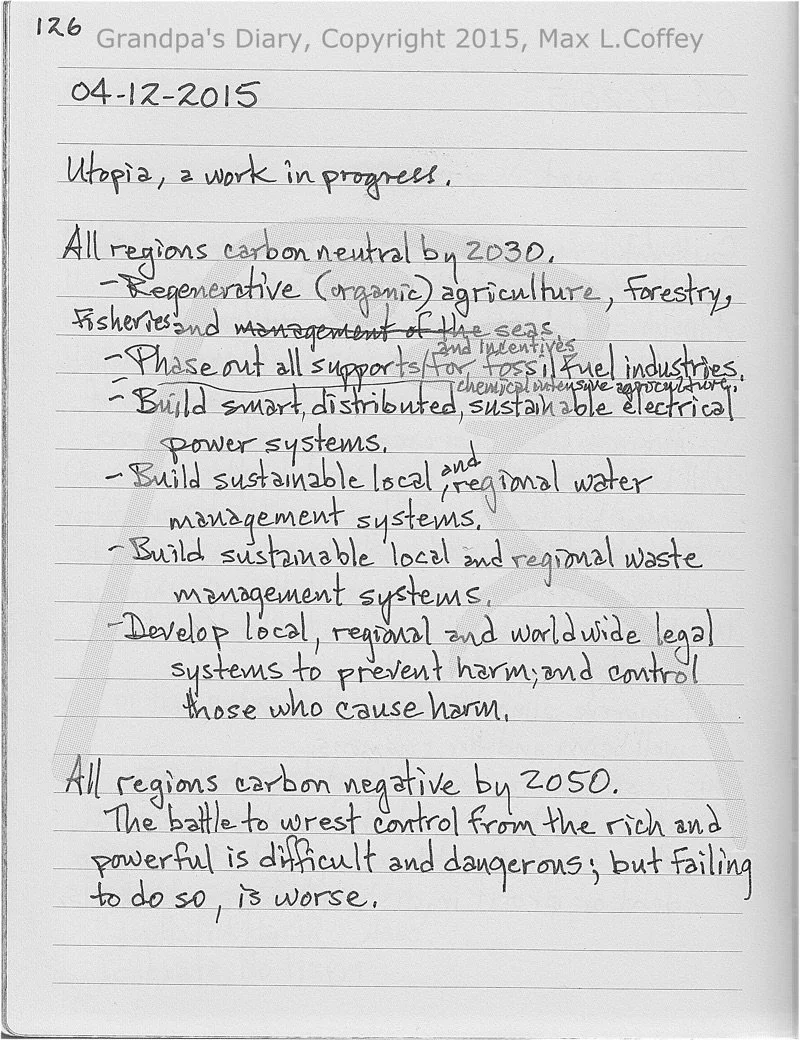 126
Grandpa's Diary, Copyright 2015, Max L.Coffey
04-12-2015
Utopia, a work in progress.
All regions carbon neutral by 2030.
- Regenerative (organic) agriculture, forestry,
fisheries and management of the seas
and incentives
- Phase out all supports/for fossil fuel industries.
chemical intensive agroculture.
- Build smart, distributed, sustainable electrical
power systems.
and
- Build sustainable local, regional water
management systems.
- Build sustainable local and regional waste
management systems.
- Develop local, regional and worldwide legal
systems to prevent harm; and control
those who cause harm.
All regions carbon negative by 2050.
The battle to wrest control from the rich and
powerful is difficult and dangerous; but failing
to do so, is worse.